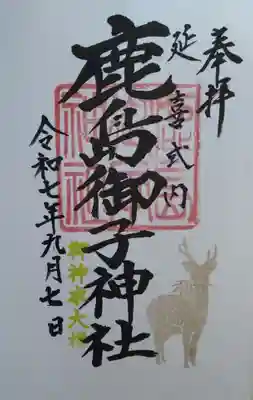 奉拝
延喜式内
鹿島御子神社
令和七年九月七日